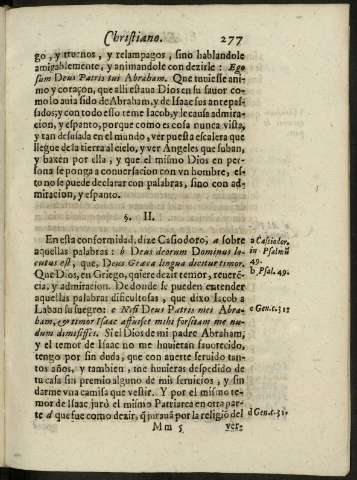 Christiano. 277
go, y truenos, y relampagos, sino hablandole
amigablemente, y animandole con dezirle: Ego
sum Deus Patris tui Abraham. Que tuuiesse ani-
mo y coraçon, que alli estaua Dios en su fauor co-
mo lo auia sido de Abraham, y de Isaac sus antepas-
sados; y con todo esso teme Iacob, y le causa admira-
cion, y espanto, porque como es cosa nunca vista,
y tan desusada en el mundo, ver puesta escalera que
llegue de la tierra al cielo, y ver Angeles que suban,
y baxen por ella, y que el mismo Dios en per-
sona se ponga a conuersacion con vn hombre, es-
to no se puede declarar con palabras, sino con ad-
miracion, y espanto.
§. II.
En esta conformidad, dize Casiodoro, a sobre
aquellas palabras: b Deus deorum Dominus lo-
cutus est, que, Deus Græca lingua dicitur timor.
Que Dios, en Griego, quiere dezir temor, reuerē-
cia, y admiracion. De donde se pueden entender
aquellas palabras dificultosas, que dixo Iacob a
Laban su suegro: c Nisi Deus Patris mei Abra-
ham, & timor Isaac affuisset mihi forsitam me nu-
dum dimisisses. Si el Dios de mi padre Abraham,
y el temor de Isaac no me huuieran fauorecido,
tengo por sin duda, que con auerte seruido tan-
tos años, y tambien, me huuieras despedido de
tu casa sin premio alguno de mis seruicios, y sin
darme vna camisa que vestir. Y por el mismo te-
mor de Isaac juró el mismo Patriarca en otra par-
te d que fue como dezir, q̃ jurauã por la religiõ del
Mm 5 ver-
a Casiodor.
in Psalmū
49.
b Psal. 49.
c Gen. c. 31.
d Gen. c. 31.